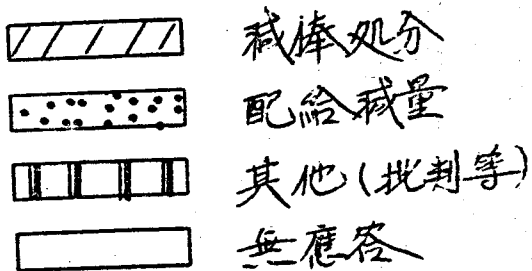 減俸処分
配給減量
其他(批判等)
無應答